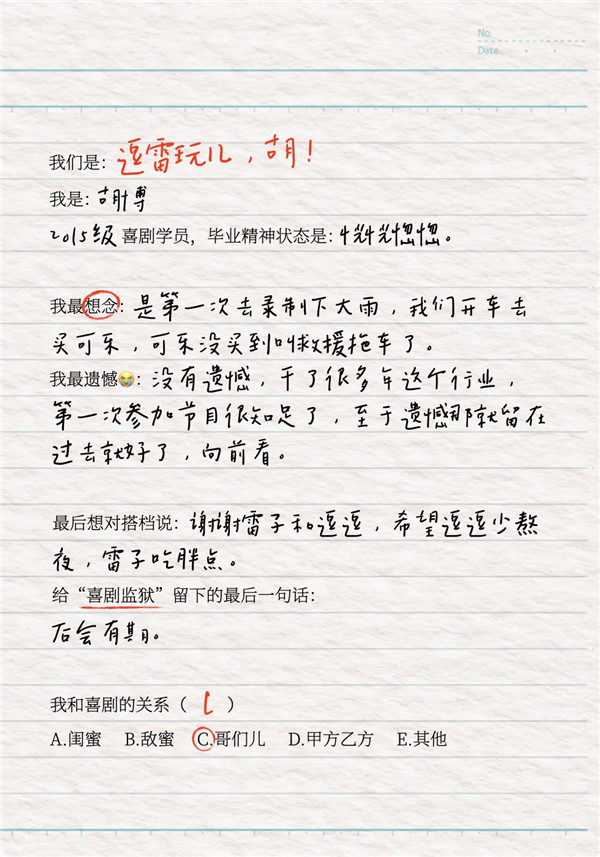 No.
Date
我们是：逗雷玩儿，胡！
我是：胡博
2015级 喜剧学员，毕业精神状态是：恍恍惚惚。
我最想念：是第一次去录制下大雨，我们开车去
买可乐，可乐没买到叫救援拖车了。
我最遗憾😭：没有遗憾，干了很多年这个行业，
第一次参加节目很知足了，至于遗憾那就留在
过去就好了，向前看。
最后想对搭档说：谢谢雷子和逗逗，希望逗逗少熬
夜，雷子吃胖点。
给“喜剧监狱”留下的最后一句话：
后会有期。
我和喜剧的关系（C）
A.闺蜜 B.敌蜜 C.哥们儿 D.甲方乙方 E.其他